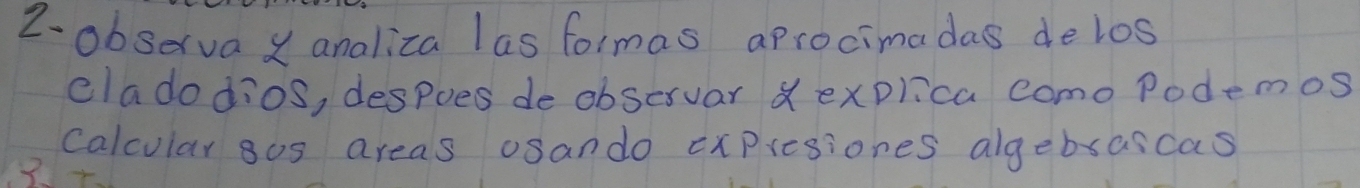 2-observa y analiza las formas aprocimadas delos
eladodios, despues de observar y explica como Podemos
calcular sus areas usando expresiones algebraicas
3.